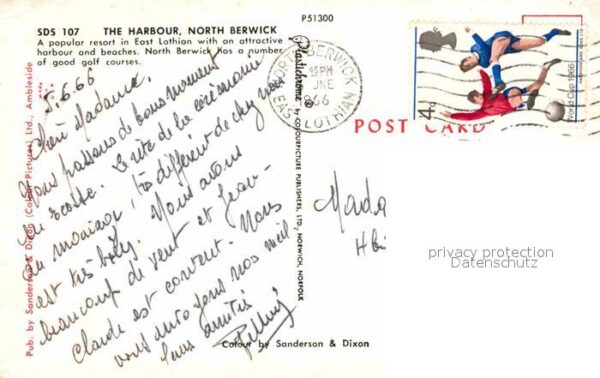 P51300
SDS 107 THE HARBOUR, NORTH BERWICK
A popular resort in East Lothian with an attractive
harbour and beaches. North Berwick has a number
of good golf courses.
6.66
Madame,
Nous passons de bons moments
en Ecosse. Le rite de la cérémonie
du mariage, très différent de chez nous
est très
beaucoup de vent et Jean-
Claude est content. Nous
vous envoyons nos meil-
leures amitiés
Pub. by Sanderson & Dixon (Colour Pictures) Ltd., Ambleside
Plastichrome ® by COLOURPICTURE PUBLISHERS, LTD., NORWICH, NORFOLK
Colour by Sanderson & Dixon
NORTH BERWICK
15 PM
JNE
66
EAST LOTHIAN
POST CARD
4d
World Cup 1966
Mada
privacy protection
Datenschutz